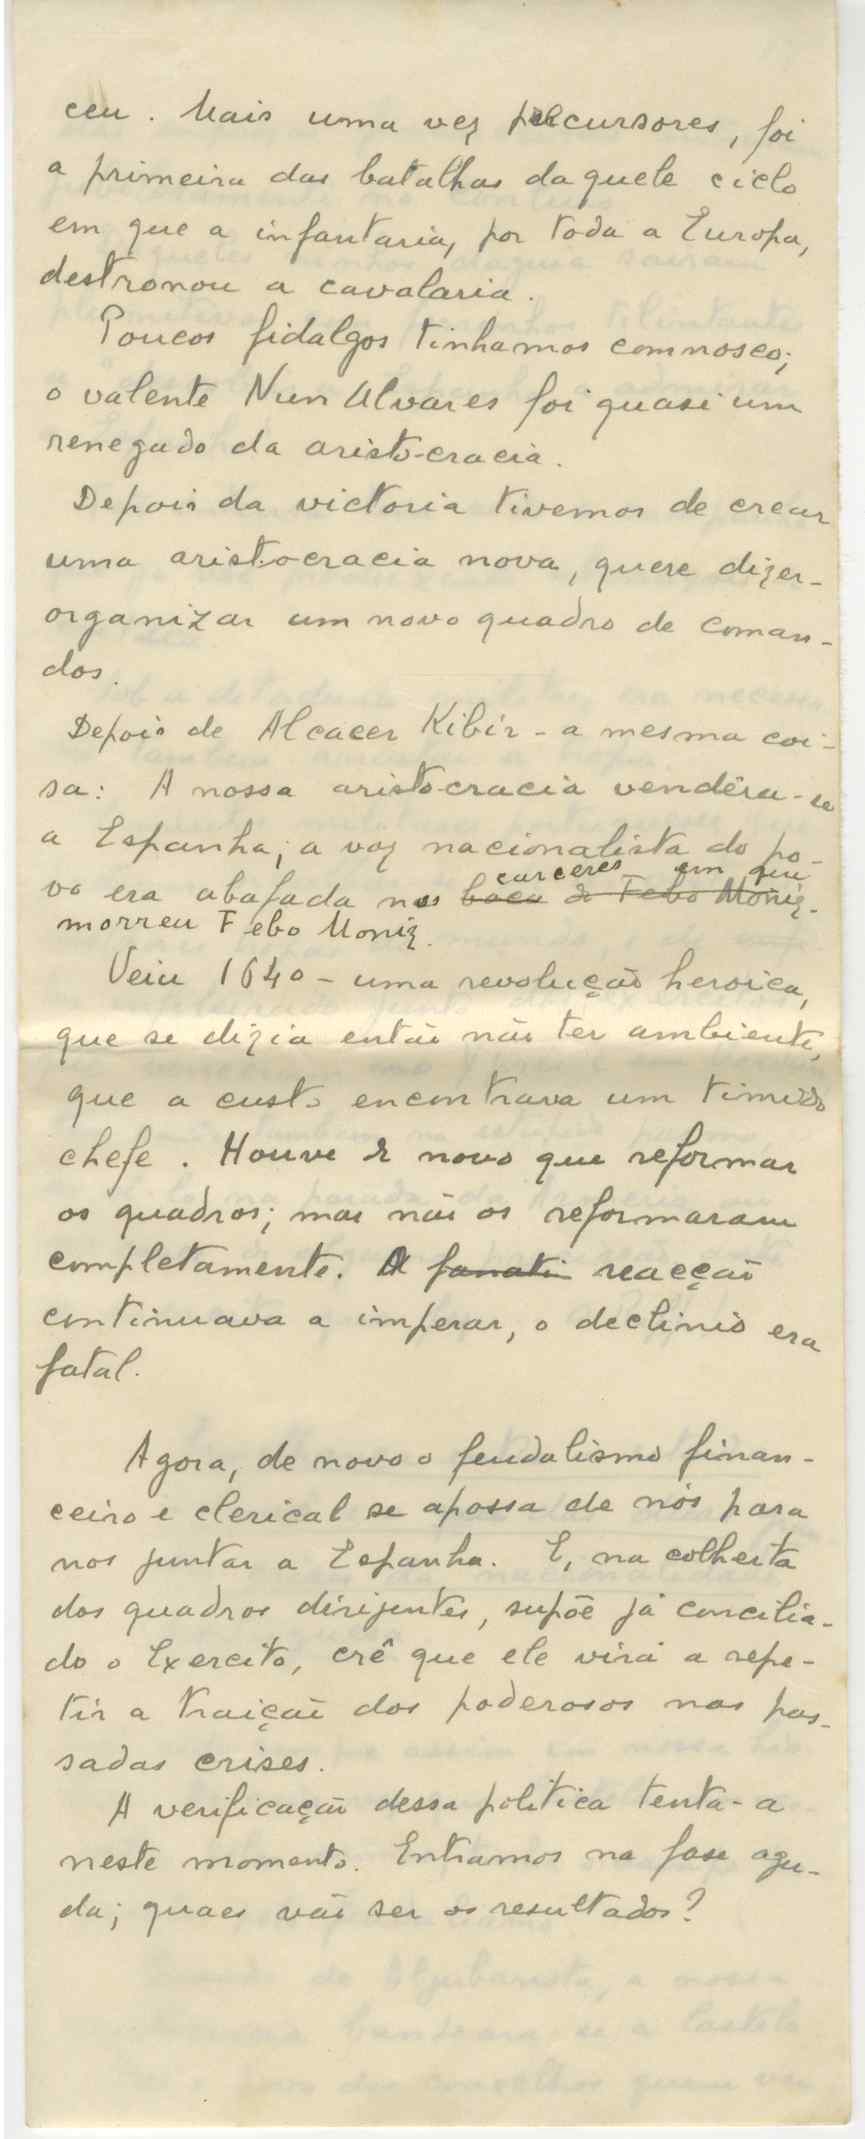 ceu. Mais uma vez percursores, foi
a primeira das batalhas daquele ciclo
em que a infantaria, por toda a Europa,
destronou a cavalaria.
Poucos fidalgos tinhamos comnosco;
o valente Nun Alvares foi quasi um
renegado da aristocracia.
Depois da victoria tivemos de crear
uma aristocracia nova, quere dizer-
organizar um novo quadro de coman-
dos.
Depois de Alcacer Kibir - a mesma coi-
sa: A nossa aristocracia vendêra-se
a Espanha; a voz nacionalista do po-
carceres em que
vo era abafada nos boca de Febo Moniz.
morreu Febo Moniz.
Veiu 1640 - uma revolução heroica,
que se dizia então não ter ambiente,
que a custo encontrava um timido
chefe. Houve de novo que reformar
os quadros; mas não os reformaram
completamente. A fanati reacção
continuava a imperar, o declinio era
fatal.
Agora, de novo o feudalismo finan-
ceiro e clerical se apossa de nós para
nos juntar a Espanha. E, na colheita
dos quadros dirijentes, supõe já concilia-
do o Exercito, crê que ele virá a repe-
tir a traição dos poderosos nas pas-
sadas crises.
A verificação dessa politica tenta-a
neste momento. Entramos na fase agu-
da; quaes vão ser os resultados?